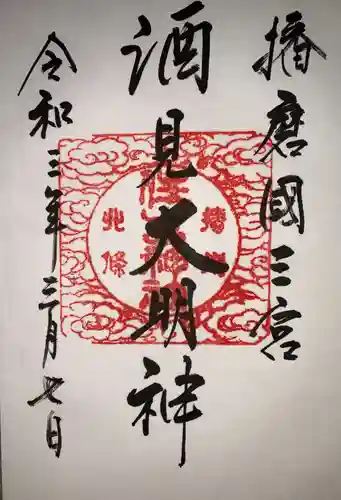 播磨國三宮
酒見大明神
令和三年三月七日
播州
北條
住吉神社